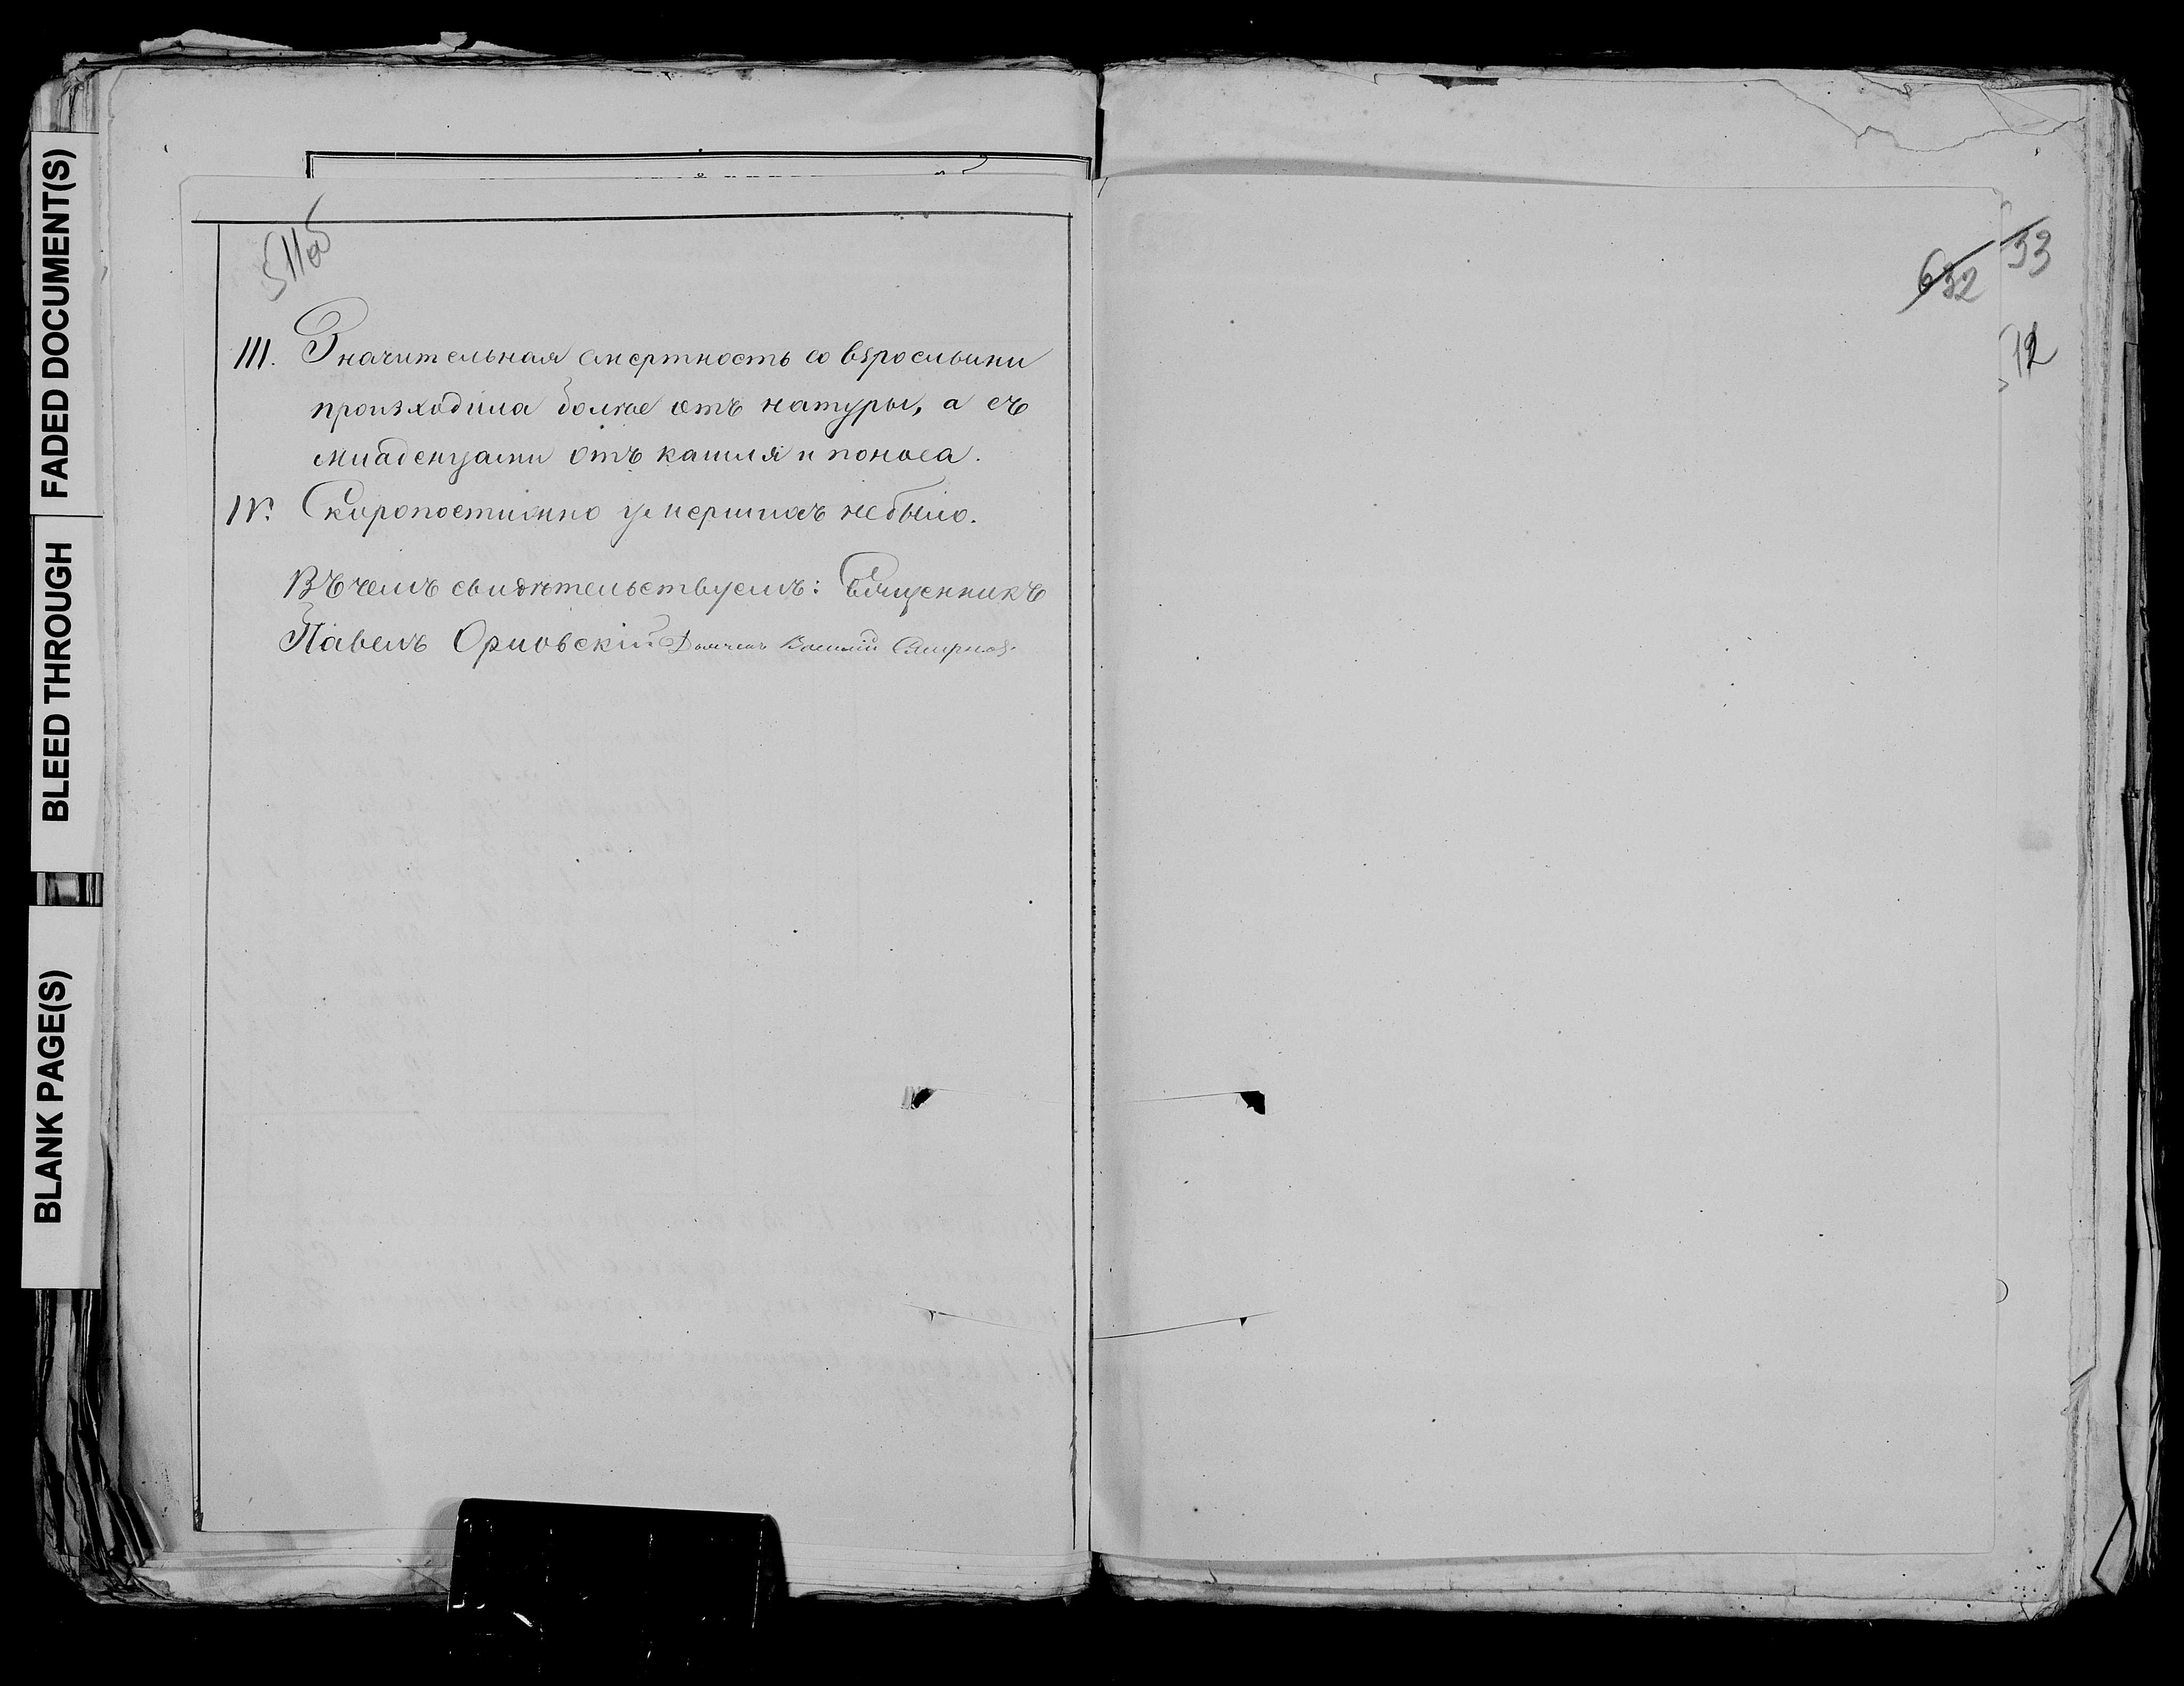 FADED DOCUMENT(S)
BLEED THROUGH
BLANK PAGE(S)
511об
III. Значительная смертность со взрослыми
произходила болѣе отъ натуры, а съ
младенцами отъ кашля и поноса.
IV. Скоропостижно умершихъ не было.
Въ чемъ свидѣтельствуемъ: Священникъ
Павелъ Орловскій Дьячекъ Василій Смирновъ
632 33
512